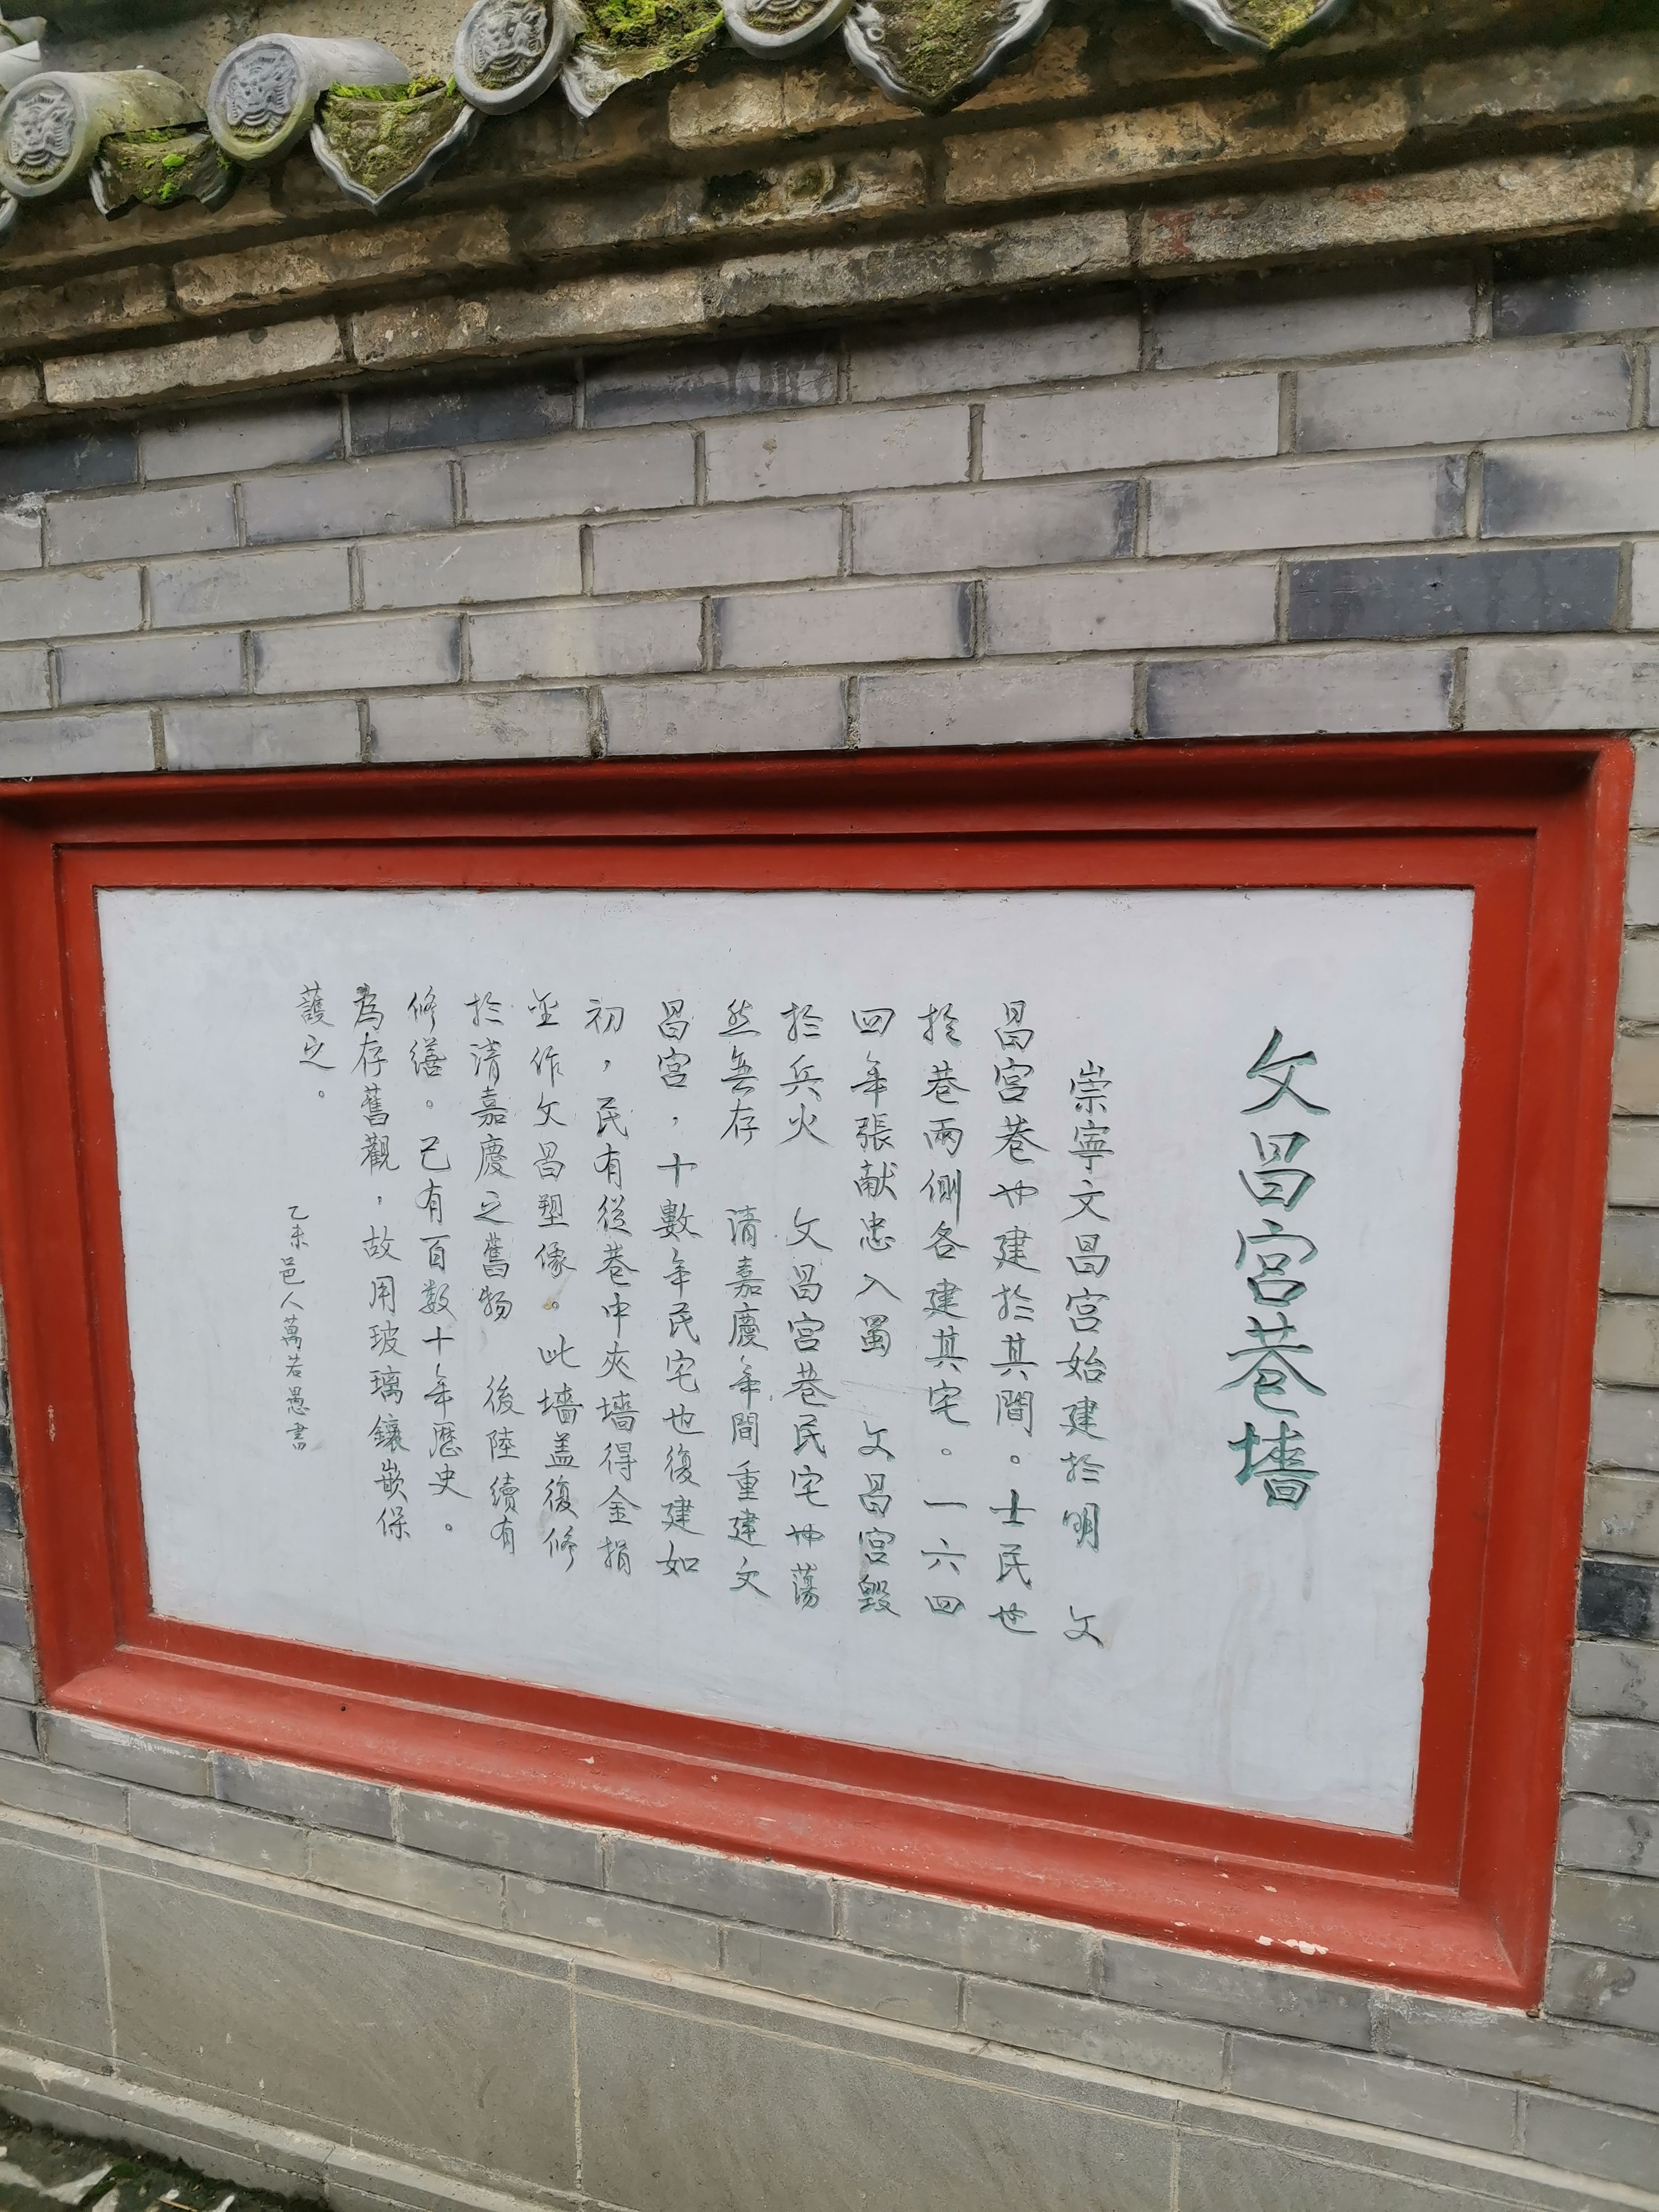 文昌宫巷墻
崇寧文昌宫始建於明 文
昌宫巷也建於其間。士民也
於巷兩側各建其宅。一六四
四年張献忠入蜀 文昌宫毁
於兵火 文昌宫巷民宅也蕩
然無存 清嘉慶年間重建文
昌宫，十數年民宅也復建如
初，民有從巷中夾墻得金捐
並作文昌塑像。此墻盖復修
於清嘉慶之舊物 後陸續有
修繕。已有百数十年歷史。
為存舊觀，故用玻璃鑲嵌保
護之。
乙未邑人萬若愚書